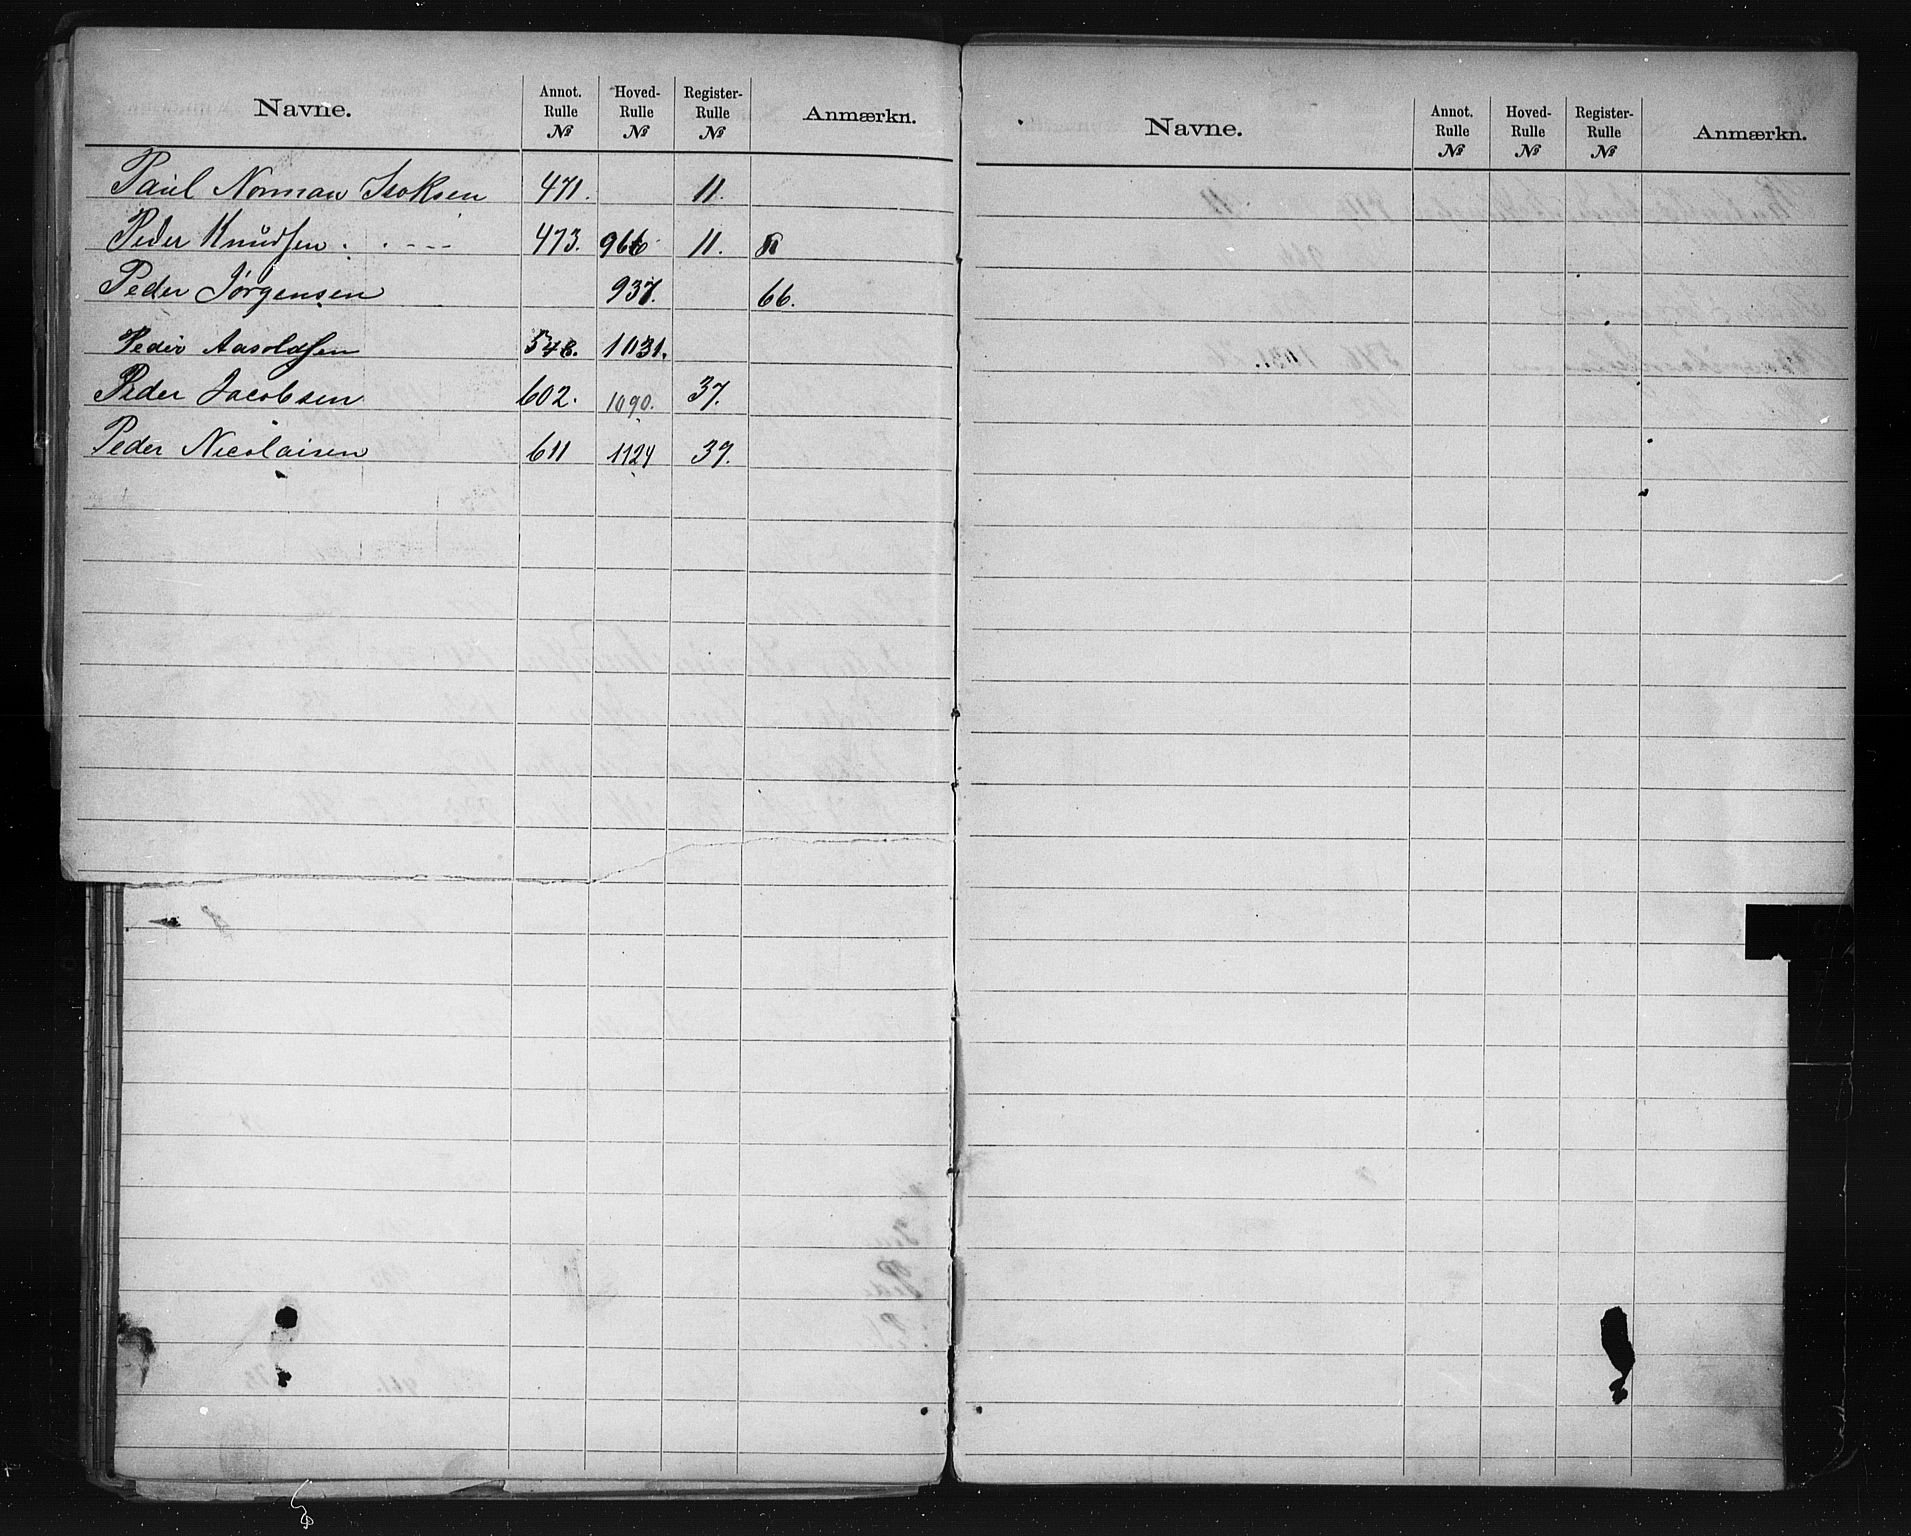 Navne. Annot. Rulle № Hoved-Rulle № Register-Rulle № Anmærkn.
Paul Norman Isoksen 471. 11.
Peder Knudsen . . - - - 473. 966 11.
Peder Jørgensen 937. 66.
Peder Aasoldsen 548. 1031.
Peder Jacobsen 602. 1090. 37.
Peder Nicolaisen 611 1124 39.
Navne. Annot. Rulle № Hoved-Rulle № Register-Rulle № Anmærkn.